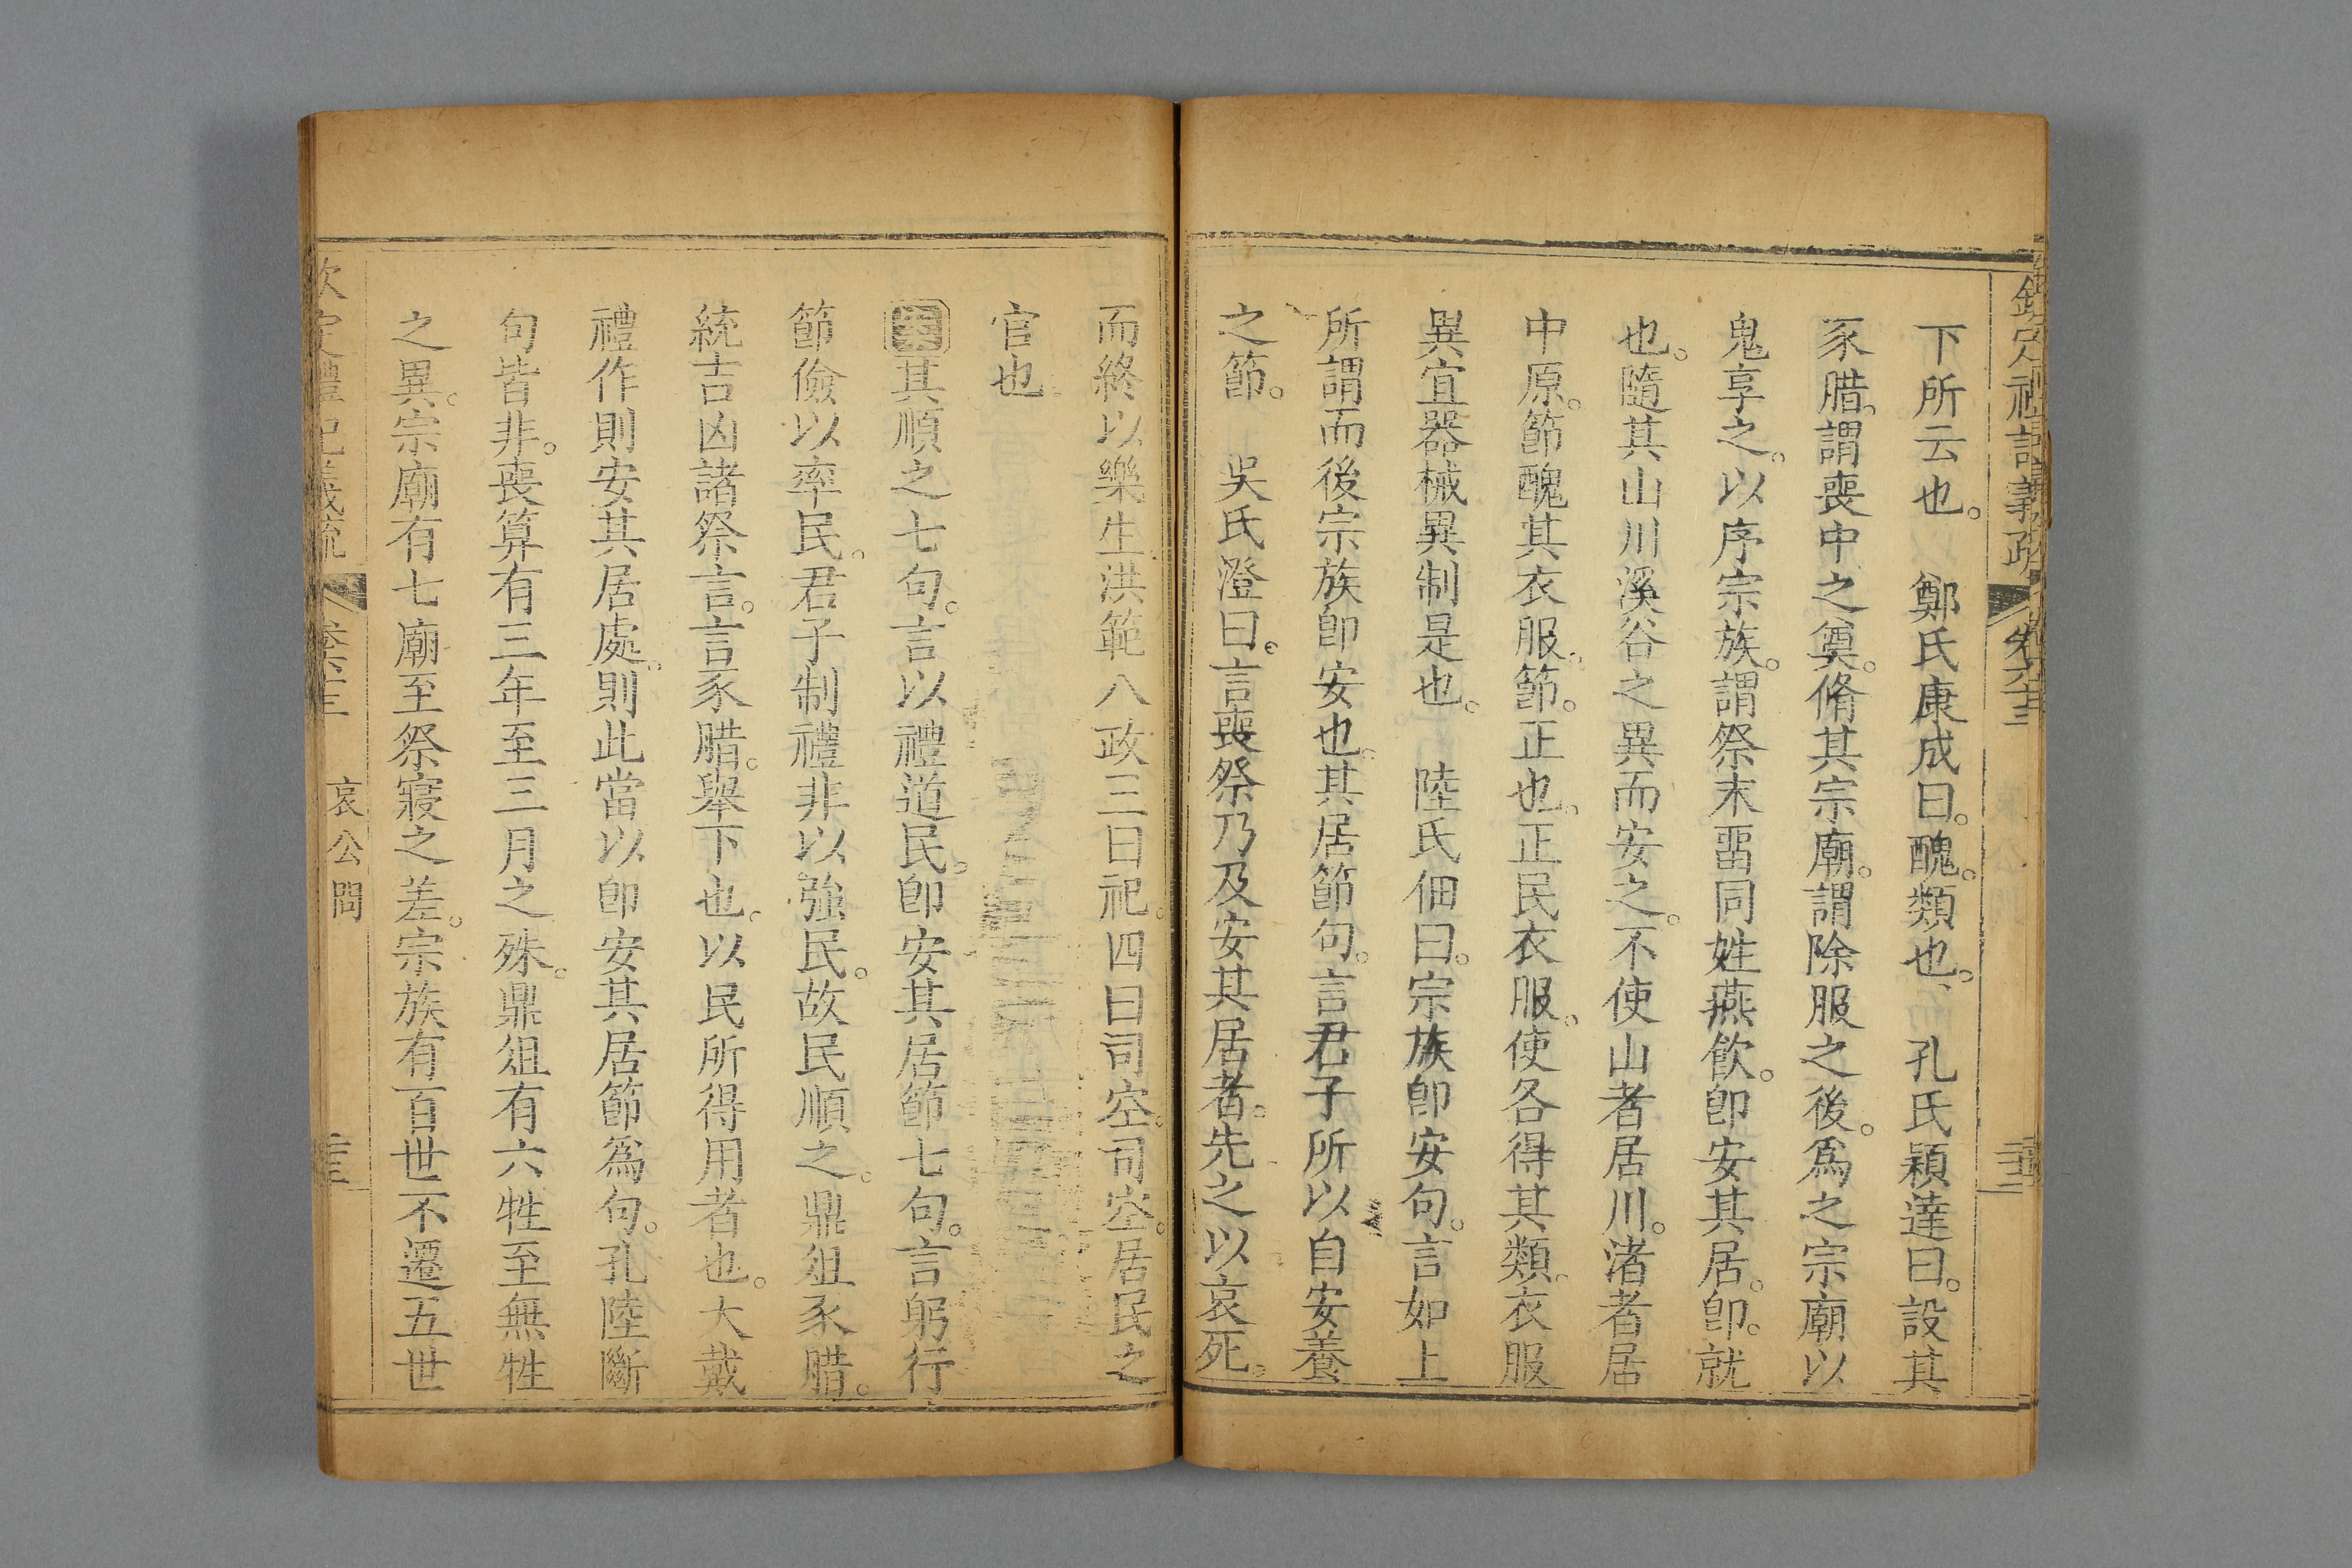 欽定禮記義疏 卷六十三
下所云也。 鄭氏康成曰。醜。類也。 孔氏穎達曰。設其
豕腊。謂喪中之奠。脩其宗廟。謂除服之後。爲之宗廟以
鬼享之。以序宗族。謂祭末畱同姓燕飮。卽安其居。卽。就
也。隨其山川溪谷之異而安之。不使山者居川。渚者居
中原。節醜其衣服。節。正也。正民衣服。使各得其類。衣服
異宜器械異制是也。 陸氏佃曰。宗族卽安句。言如上
所謂而後宗族卽安也。其居節句。言君子所以自安養
之節。 吳氏澄曰。言喪祭乃及安其居者。先之以哀死。
而終以樂生洪範八政三曰祀。四曰司空。司空。居民之
官也
其順之七句。言以禮道民。卽安其居節七句。言躬行
節儉以率民。君子制禮非以強民。故民順之。鼎俎豕腊。
統吉凶諸祭言。言豕腊。舉下也。以民所得用者也。大戴
禮作則安其居處。則此當以卽安其居節爲句。孔陸斷
句皆非。喪算有三年至三月之殊。鼎俎有六牲至無牲
之異。宗廟有七廟至祭寢之差。宗族有百世不遷五世
欽定禮記義疏 卷六十三 哀公問